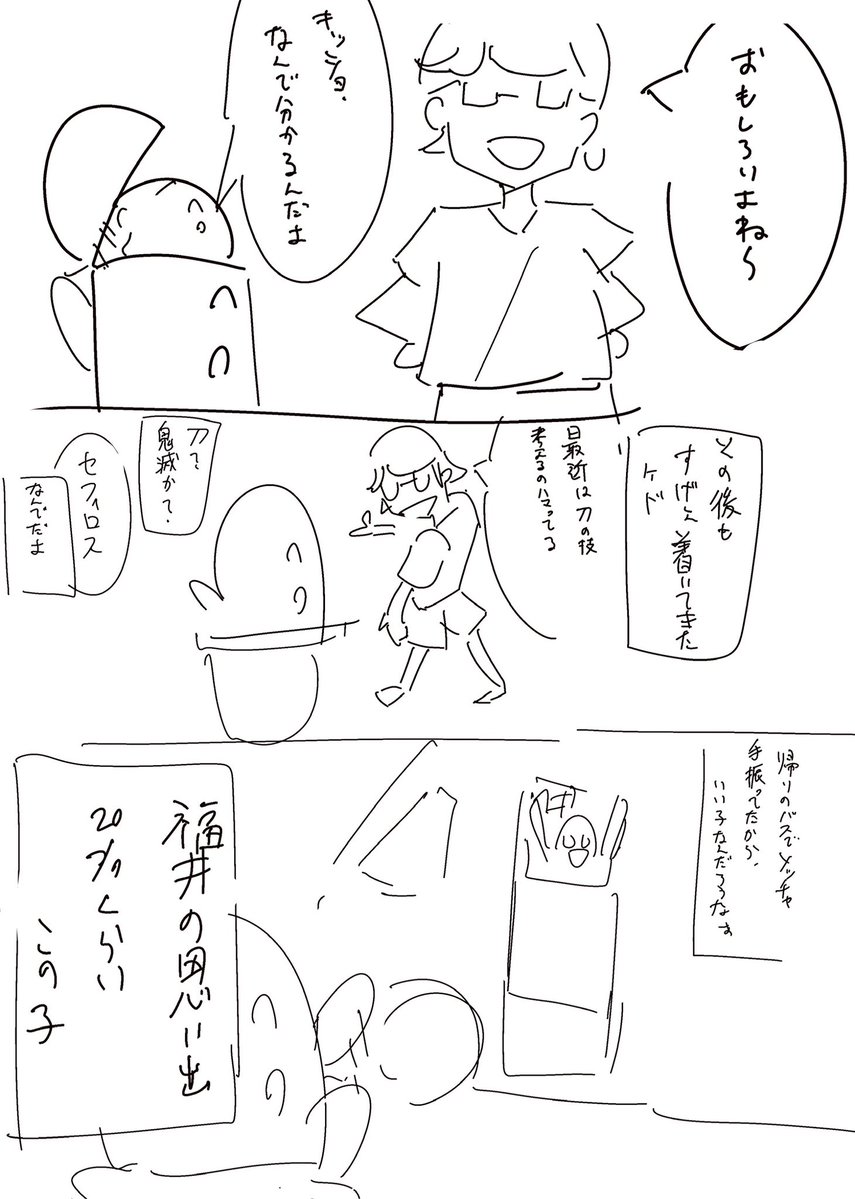 おもしろいよね〜
キッショ、
なんで分かるんだよ
その後も
すげぇ着いてきた
ケド
最近は刀の技
考えるのハマってる
刀て
鬼滅かて.
セフィロス
なんでだよ
帰りのバスでメッチャ
手振ってたから、
いい子なんだろうなぁ
福井の思い出
20%くらい
この子